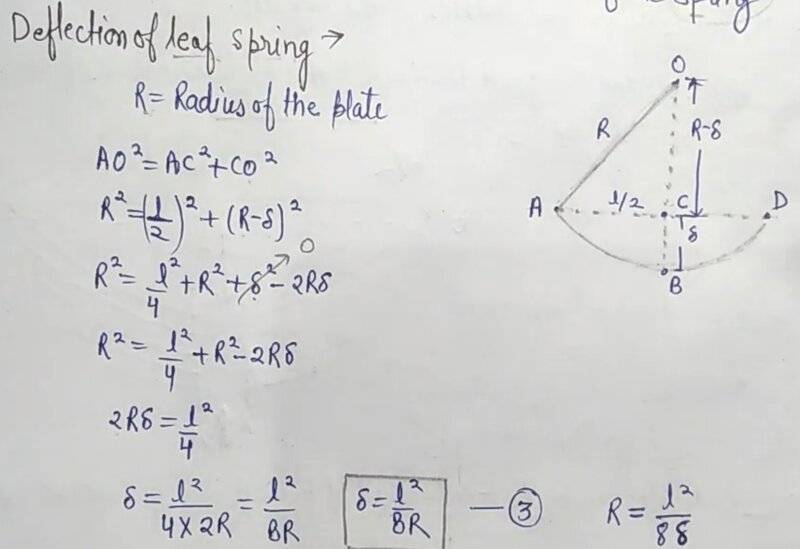 spring
Deflection of leaf spring →
R = Radius of the plate
AO² = AC² + CO²
R² = (l/2)² + (R-δ)²
R² = l²/4 + R² + δ² - 2Rδ
0
R² = l²/4 + R² - 2Rδ
2Rδ = l²/4
δ = l²/4×2R = l²/8R
δ = l²/8R
— ③
R = l²/8δ
O
R
R-δ
A
l/2
C
D
δ
B